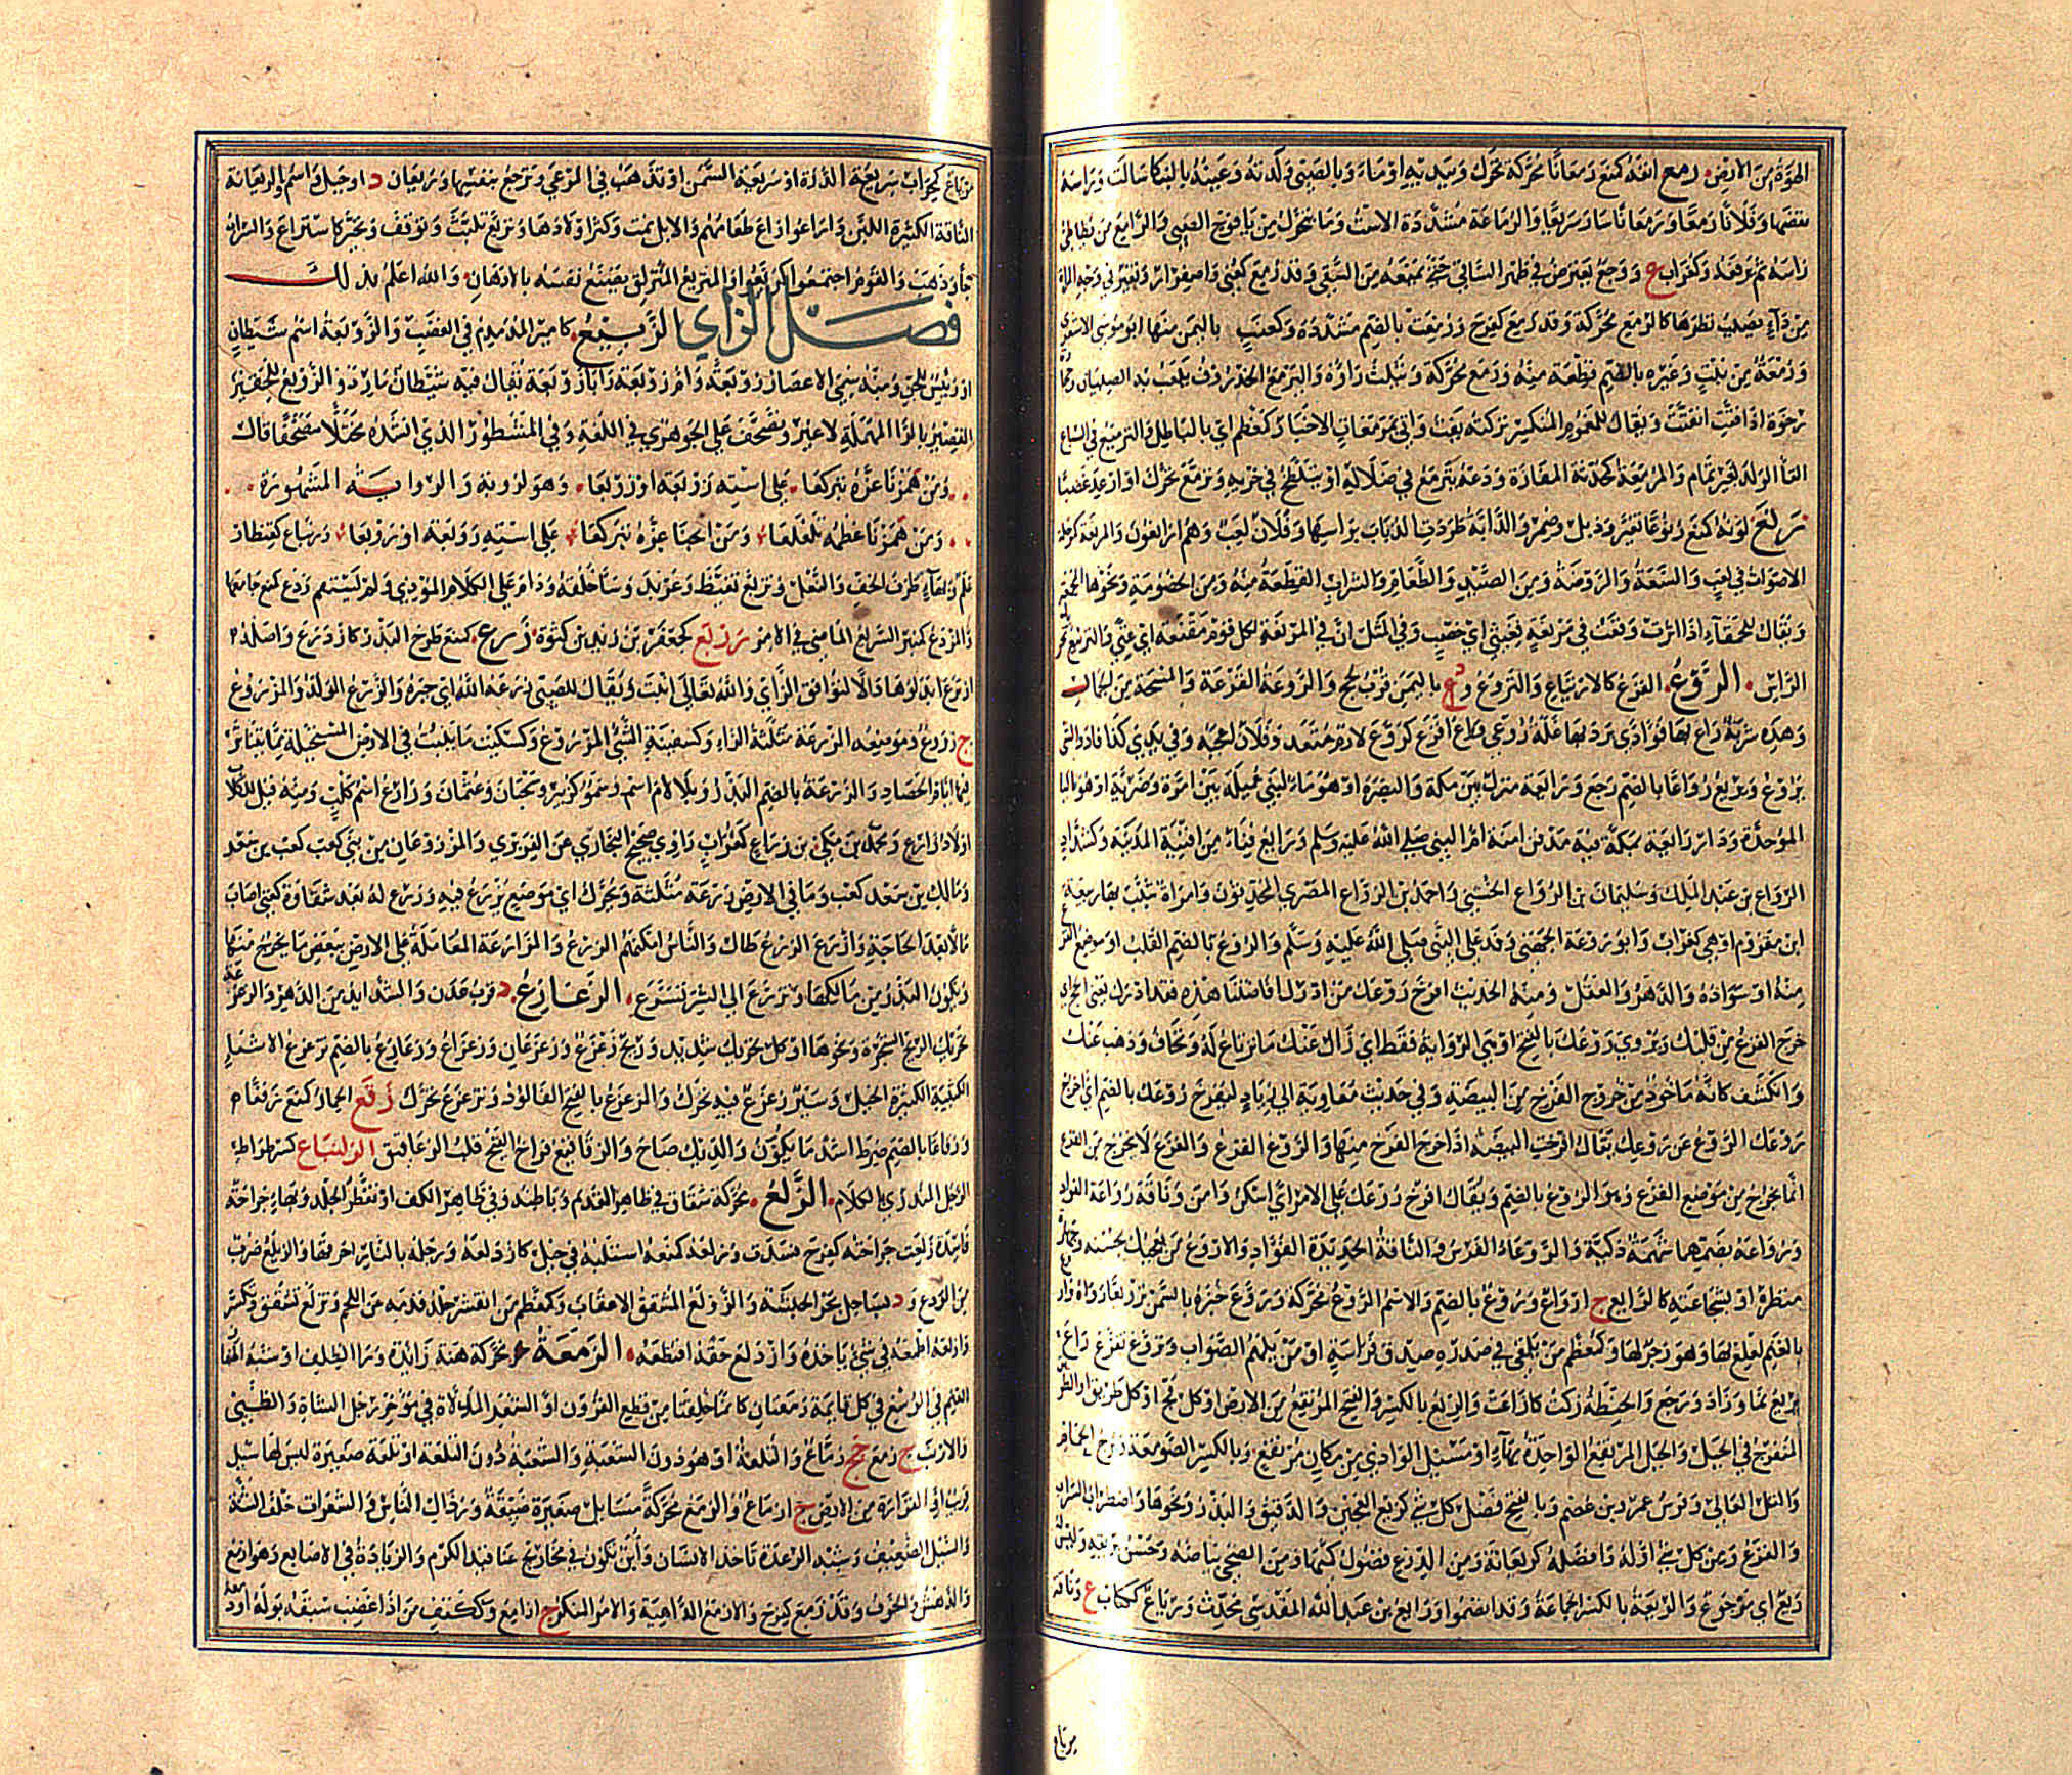 الهوة من الارض رمع انفه كمنع رمعانا محركة تحرك وبيديه اوماء وبالصبى ولدته وعينه بالبكا سالت وراسه
نفضها وفلانا رمعا ورمعانا سار سريعا والرماعة مشددة الاست وما يتحرك من يافوخ الصبى والرامع من يطاطئ
راسه ثم يرفعه وكغراب ع ووجع يعترض فى ظهر الساقى حتى يمنعه من السقى وقد رمع كعنى واصفرار وتغير فى وجه المراة
من داء يصيب بظرها كالرمع محركة وقد رمع كفرح ورمعت بالضم مشددة وكعنب باليمن منها ابو موسى الاشعرى
ورمعة من نبت وغيره بالضم قطعة منه ورمع محركة وتثلث راؤه واليرمع الخذروف يلعب به الصبيان وحجارة
رخوة اذا فتت انفتت ويقال للمغموم المنكسر تركته يفت واتى بمرمعات الاخبار كمعظم اى بالباطل والترميع فى السباع
القا الولد لغير تمام والمرمعة كمحدثة المفازة ودعه يترمع فى ضلالته او يتلطخ فى خرئه وترمع تحرك او ارعد غضبا
رنع لونه كمنع رنوعا تغير وذبل وضمر والدابة طردت الذباب براسها وفلان لعب وهم رانعون والمرنعة كمرحلة
الاصوات فى لعب والسعة والروضة ومن الصيد والطعام والشراب القطعة منه ومن الخصومة ونحوها
ويقال للحمقاء اذا اثرت وقعت فى مرنعة فعيثى اى خصب وفى المثل ان فى المرنعة لكل قوم مقنعة اى غنى والترنيع تحريك
الراس الروع الفزع كالارتياع والتروع و د باليمن قرب لحج والروعة الفزعة والمسحة من الجمال
وهذه شربة راع بها فؤادى برد بها غلة روعى وراع افزع كروع لازم متعد وفلانا اعجبه وفى يدى كذا فاد والشى
يروع ويريع رواعا بالضم رجع ورائعة منزل بين مكة والبصرة او هو ماء لبنى عميلة بين امرة وضرية او هو بالبا
الموحدة ودار رائعة بمكة فيه مدفن امنة ام النبى صلى الله عليه وسلم ورائع فناء من افنية المدينة وكشداد
الرواع بن عبد الملك وسليمان بن الرواع الخشنى واحمد بن الرواع المصرى المحدثون وامراة شبب بها ربيعة
ابن مقروم او هى كغراب وابو روعة الجهنى وفد على النبى صلى الله عليه وسلم والروع بالضم القلب او موضع الفزع
منه او سواده والذهن والعقل ومنه الحديث افرخ روعك من ادرك افاضتنا هذه فقد ادرك يعنى الحج اى
خرج الفزع من قلبك ويروى روعك بالفتح او هى الرواية فقط اى زال عنك ما ترتاع له وتخاف وذهب عنك
وانكشف كانه ماخوذ من خروج الفرخ من البيضة وفى حديث معاوية الى زياد ليفرخ روعك بالضم اى اخرج
روعك الروع عن روعك يقال افرخت البيضة اذا خرج الفرخ منها والروع الفزع والفزع لا يخرج من الفزع
انما يخرج من موضع الفزع وهو الروع بالضم ويقال افرخ روعك على الامر اى اسكن وامن وناقة رواعة الفؤاد
ورواعه بضمهما شهمة ذكية والروعاء الفرس والناقة الحديدة الفؤاد والاروع من يعجبك بحسنه وجهارة
منظره او بشجاعته كالرائع ج ارواع وروع بالضم والاسم الروع محركة وروع خبزه بالسمن ترويعا رواه وراو
بالغنم لعلع بها وهو زجر لها وكمعظم من يلقى فى صدره صدق فراسة او من يلهم الصواب وتروع تفزع راع
يريع نما وزاد ورجع والحنطة زكت كاراعت والريع بالكسر والفتح المرتفع من الارض او كل فج او كل طريق او الطريق
المنفرج فى الجبل والجبل المرتفع الواحدة بهاء او مسيل الوادى من مكان مرتفع وبالكسر الصومعة وبرج الحمام
والتل العالى وفرس عمرو بن عصم وبالفتح فضل كل شى كريع العجين والدقيق والبذر ونحوها واضطراب السراب
والفزع ومن كل شى اوله وافضله كريعانه ومن الدرع فضول كميها ومن الضحى بياضه وحسن بريقه وليس له
ريع اى مرجوع والريعة بالكسر الجماعة وقد انضموا ورائع بن عبد الله المقدسى محدث ورياع ككتاب ع وناقة
مرياع
مرياع كمحراب سريعة الدرة او سريعة السمن او تذهب فى المرعى وترجع بنفسها وريعان د او جبل واسم والريعانة
الناقة الكثيرة اللبن واراعوا راع طعامهم والابل نمت وكثر اولادها وتريع تلبث وتوقف وتحير كاستراع والسراب
جاء وذهب والقوم اجتمعوا كريعوا والمتريع المتزلق يصنع نفسه بالادهان والله اعلم بذلك
فصل الزاى الزبيع كامير المدمدم فى الغضب والزوبعة اسم شيطان
او رئيس للجن ومنه سمى الاعصار زوبعة وام زوبعة وابا زوبعة يقال فيه شيطان مارد والزوبع للحقير
القصير بالراء المهملة لا غير وتصحف على الجوهرى فى اللغة وفى المشطور الذى انشده مختلا مصحفا قال
ومن همزنا عزه تبركعا على استه زوبعة او زوبعا وهو لروبة والرواية المشهورة
ومن همزنا عظمه تلعلعا ومن ابحنا عزه تبركعا على استه روبعة او روبعا وزنباع كقنطار
علم وبهاء طرف الخف والنعل وتزبع تغيظ وعربد وساء خلقه ودام على الكلام الموذى ولم يستقم زدع كمنع جامعها
والمزدع كمنبر السريع الماضى فى الامر زربع كجعفر بن زيد بن كثوة زرع كمنع طرح البذر كازدرع واصله
ازترع ابدلوها دالا لتوافق الزاى والله تعالى انبت ويقال للصبى زرعه الله اى جبره والزرع الولد والمزروع
ج زروع وموضعه المزرعة مثلثة الراء وكسفينة الشى المزروع وكسكيت ما ينبت فى الارض المستحيلة مما يتناثر
فيها ايام الحصاد والزرعة بالضم البذر وبلا لام اسم وسموا كزبير وسحبان وعثمان وزارع اسم كلب ومنه قيل للكلاب
اولاد زارع ومحمد بن مكى بن زراع كغراب راوى صحيح البخارى عن الفربرى والمزروعان من بنى كعب كعب بن سعد
ومالك بن سعد كعب وما فى الارض زرعة مثلثة وتحرك اى موضع يزرع فيه وزرع له بعد شقاوة كعنى اصاب
مالا بعد الحاجة وازرع الزرع طال والناس امكنهم الزرع والمزارعة المعاملة على الارض ببعض ما يخرج منها
ويكون البذر من مالكها وتزرع الى الشر تسرع الزعازع د قرب عدن والشدائد من الدهر والزعزعة
تحريك الريح الشجرة ونحوها او كل تحريك شديد وريح زعزع وزعزعان وزعزاع وزعازع بالضم تزعزع الاشياء
الكتيبة الكثيرة الخيل وسير زعزع فيه تحرك والزعزع بالفتح الفالوذ وتزعزع تحرك زقع الحمار كمنع زقعا
وزقاعا بالضم ضرط اشد ما يكون والديك صاح والزقاقيع فراخ القبج قلب الزعاقيق الزلنباع كسرطراط
الرجل المندرى بالكلام الزلع محركة شقاق فى ظاهر القدم وباطنه وفى ظاهر الكف او تفطر الجلد وبهاء جراحة
فاسدة زلعت جراحته كفرح فسدت وزلعه كمنعه استلبه فى ختل كازدلعه ورجله بالنار احرقها والزيلع ضرب
من الودع و د بساحل بحر الحبشة والزولع المتشقق الاعقاب وكمعظم من انقشر جلد قدمه عن اللحم وتزلع تشقق وتكسر
وازلعه اطمعه فى شئ ياخذه وازدلع حقه اقتطعه الزمعة محركة هنة زائدة وراء الظلف او شبه اظفار
الغنم فى الرسغ فى كل قائمة زمعتان كانما خلقتا من قطع القرون او الشعر المدلاة فى مؤخر رجل الشاة والظبى
والارنب ج زمع جج زماع والتلعة او هو دون الشعبة والشعبة دون التلعة او تلعة صغيرة ليس لها سيل
قريب او القرارة من الارض ج ازماع والزمع محركة مسايل صغيرة ضيقة ورذال الناس والشعرات خلف الثنة
والسيل الضعيف وشبه الرعدة تاخذ الانسان وابن تكون فى مخارج عناقيد الكرم والزيادة فى الاصابع وهو ازمع
والدهش والخوف وقد زمع كفرح والازمع الداهية والامر المنكر ج ازامع وككتف من اذا غضب سبقه بوله او دمعه